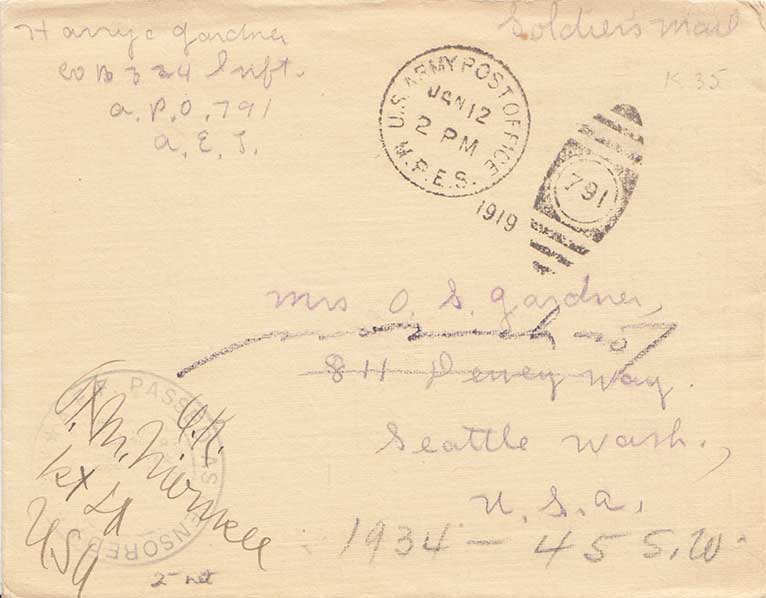 Harry C Gardner
Co B 334 Inft.
A.P.O. 791
A. E. F.
Soldier's mail
K 35
U.S. ARMY POST OFFICE
JAN 12
2 PM
M.P.E.S.
1919
791
Mrs O. S. Gardner,
811 Dewey Way.
Seattle Wash.,
U.S.A.
1934 - 45 S.W.
PASSED AS CENSORED
O.K.
1st Lt
USA
2- net